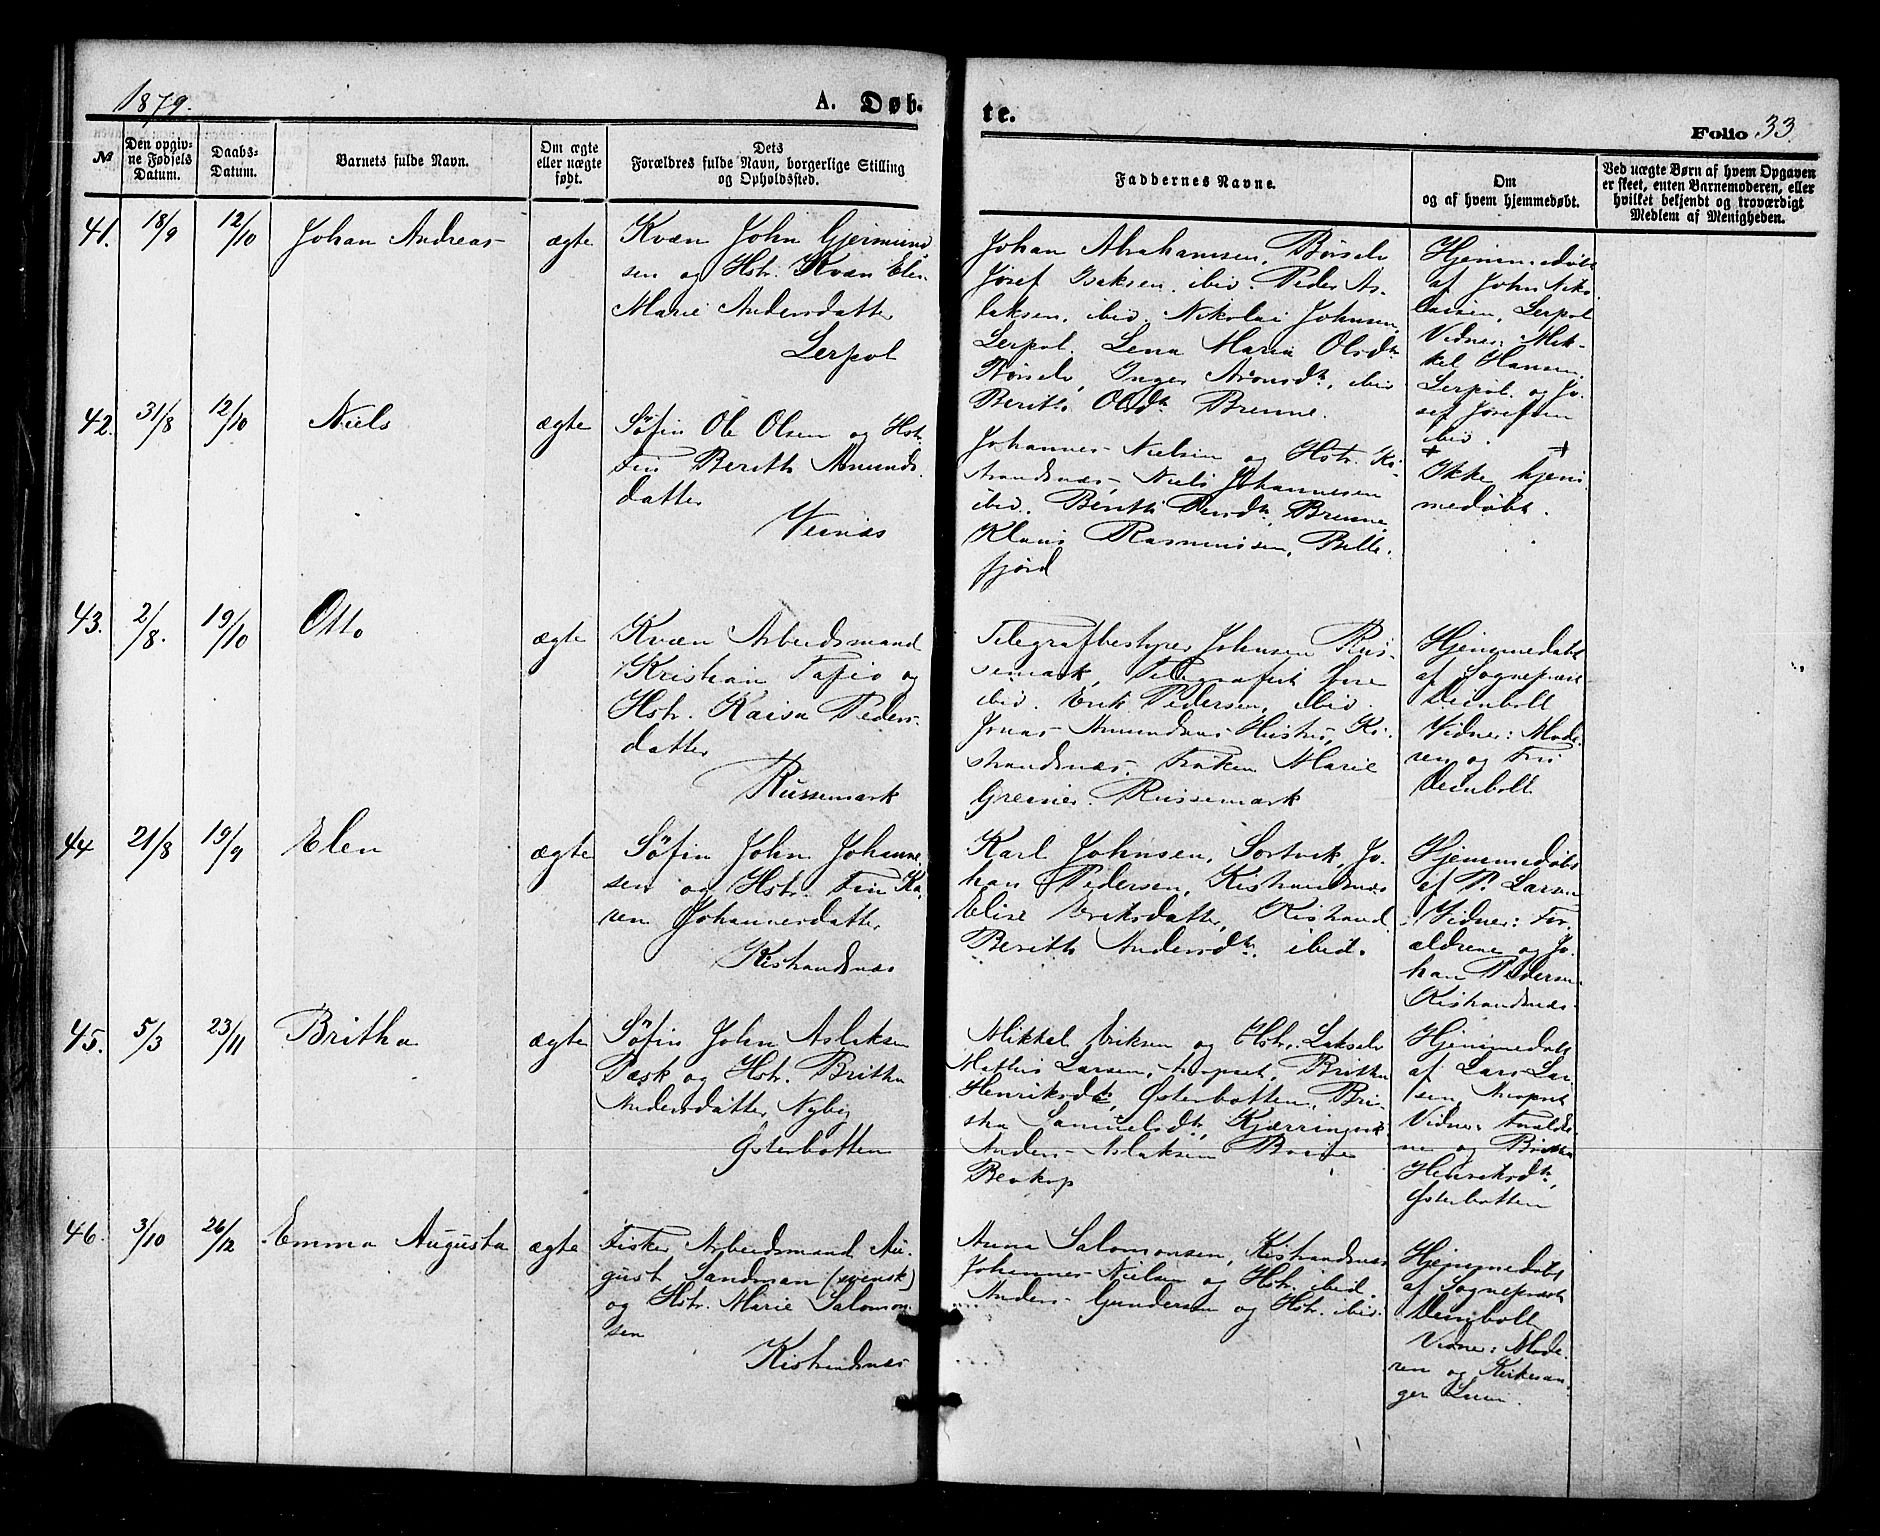 1879.
A. Døb-
te.
Folio 33
№
Den opgiv-
ne Fødsels
Datum.
Daabs-
Datum.
Barnets fulde Navn.
Om ægte
eller uægte
født.
Dets
Forældres fulde Navn, borgerlige Stilling
og Opholdssted.
Faddernes Navne.
Om
og af hvem hjemmedøbt.
Ved uægte Børn af hvem Opgaven
er skeet, enten Barnemoderen, eller
hvilket bekjendt og troværdigt
Medlem af Menigheden.
41.
18/9
12/10
Johan Andreas
ægte
Kvæn John Gjermund
sen og Hstr. Kvæn Elen
Marie Andersdatter
Lerpol
Johan Abrahamsen, Børselv
Josef Isaksen, ibid. Peder As-
laksen, ibid. Nikolai Johnsen,
Lerpol. Lena Maria Olsdtr
Børselv, Inger Aronsdtr, ibid
Berith Olsdtr Brenne.
Hjemmedøbt
af John Niko
laisen, Lerpol
Vidner: Mik-
kel Hansen,
Lerpol. og Jo-
sef Josefsen
ibid.
42.
31/8
12/10
Niels
ægte
Søfin Ole Olsen og Hstr.
Fin Berith Amunds
datter
Veines
Johannes Nielsen og Hstr. Ki-
strandsnæs, Niels Johannesen
ibid. Berith Persdtr, Brenne,
Klaus Rasmussen, Bille-
fjord
+ +
Ikke hjem
medøbt.
43.
2/8.
19/10
Otto
ægte
Kvæn Arbeidsmand
Kristian Tapio og
Hstr. Kaisa Peders-
datter
Russemark
Telegrafbestyrer Johnsen Rus-
semark, Telegrafist
ibid. Erik Pedersen, ibid.
Jonas Amundsens Hustru, Ki-
strandsnæs. Frøken Marie
Greiner. Russemark
Hjemmedøbt
af Sognepræst
Deinboll
Vidner: Mode-
ren og Fru
Deinboll
44
21/8
19/9
Elen
ægte
Søfin John Johanne-
sen og Hstr. Fin Ka-
ren Johannesdatter
Kistrandsnæs
Karl Johnsen, Sortvik, Jo-
han Pedersen, Kistrandsnæs
Elise Eriksdatter, Kistrand
Berith Andersdtr. ibid.
Hjemmedøbt
af P. Larsen
Vidner: For-
ældrene og Jo-
han Pedersen
Kistrandsnæs.
45.
5/3
23/11
Britha
ægte
Søfin John Aslaksen
Pæsk og Hstr. Britha
Andersdatter Nyby
Østerbotten
Mikkel Eriksen og Hstr. Lakselv
Mathis Larsen, Britha
Henriksdtr, Østerbotten, Bri-
tha Samuelsdtr, Kjærringvik
Anders Aslaksen
Hjemmedøbt
af Lars Lar-
sen
Vidner: Forældre-
ne og Britha
Henriksdtr,
Østerbotten
46.
3/10
26/12
Emma Augusta
ægte
Fisker Arbeidsmand Au-
gust Sandman (svensk)
og Hstr. Marie Salomon-
sen
Kistrandsnæs
Anna Salomonsen, Kistrandsnæs
Johannes Nielsen og Hstr. ibid.
Anders Gundersen og Hstr. ibid.
Hjemmedøbt
af Sognepræst
Deinboll
Vidner: Mode-
ren og Kirkesan-
ger